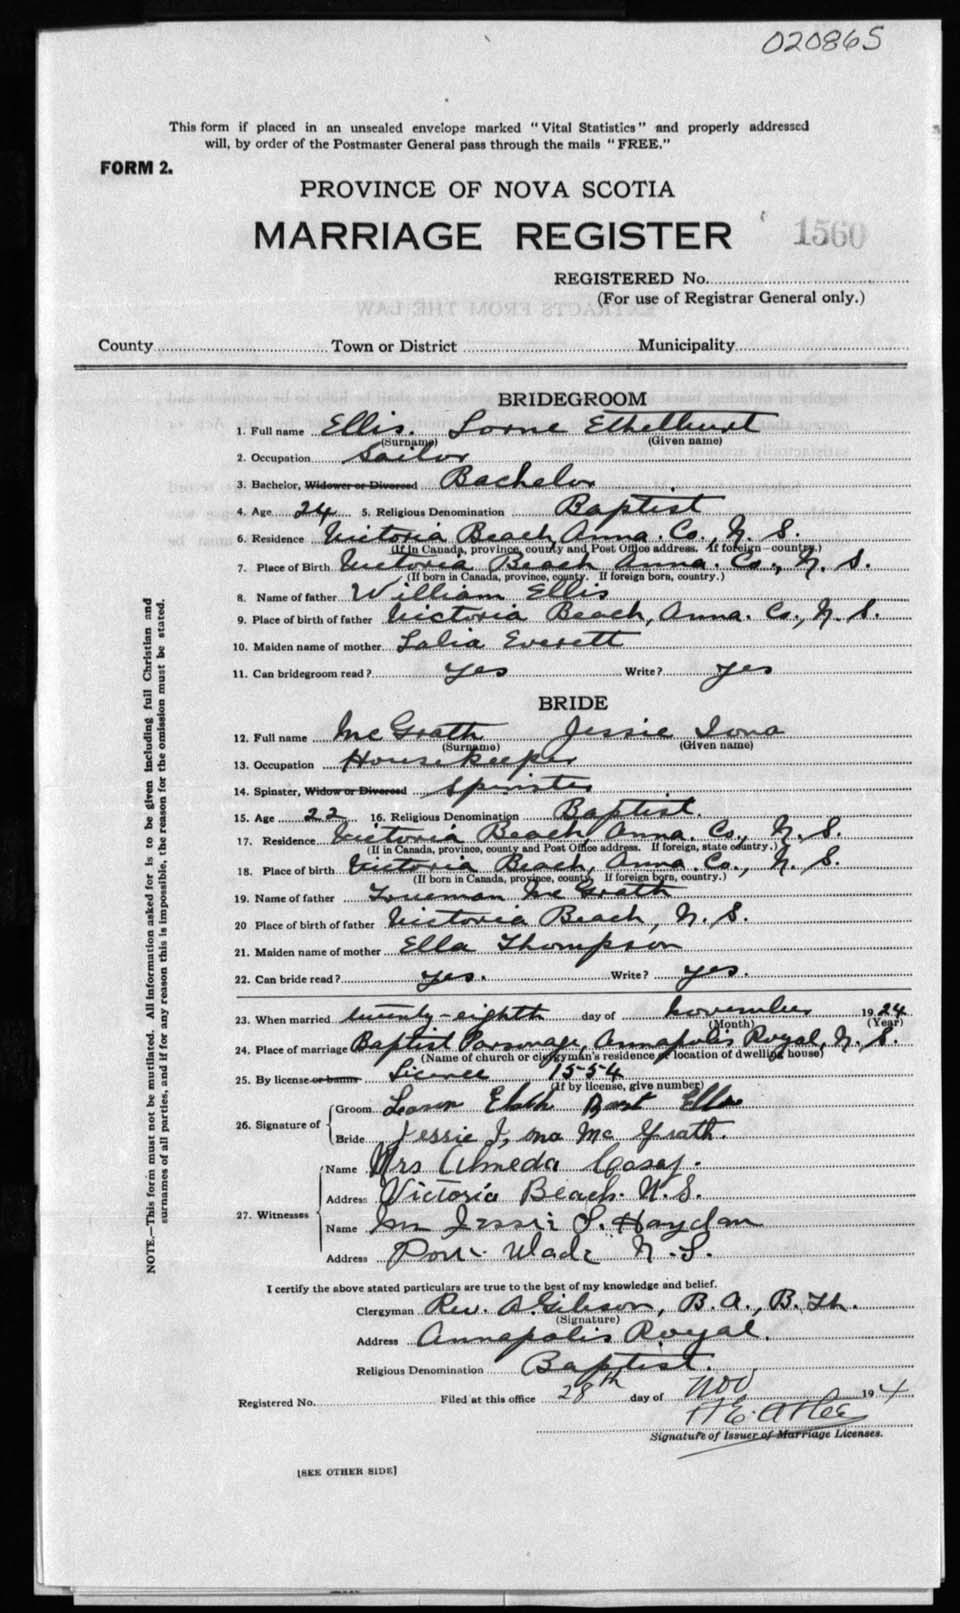 020865
This form if placed in an unsealed envelope marked "Vital Statistics" and properly addressed
will, by order of the Postmaster General pass through the mails "FREE."
FORM 2.
PROVINCE OF NOVA SCOTIA
MARRIAGE REGISTER 1560
REGISTERED No.
(For use of Registrar General only.)
County Town or District Municipality
BRIDEGROOM
1. Full name Ellis. Lorne Ethelhurst
(Surname) (Given name)
2. Occupation Sailor
3. Bachelor, Widower or Divorced Bachelor
4. Age 24 5. Religious Denomination Baptist
6. Residence Victoria Beach, Anna. Co., N. S.
(If in Canada, province, county and Post Office address. If foreign—country.)
7. Place of Birth Victoria Beach Anna. Co., N. S.
(If born in Canada, province, county. If foreign born, country.)
8. Name of father William Ellis
9. Place of birth of father Victoria Beach, Anna. Co., N. S.
10. Maiden name of mother Lalia Everett
11. Can bridegroom read? yes Write? yes
BRIDE
12. Full name McGrath Jessie Iona
(Surname) (Given name)
13. Occupation Housekeeper
14. Spinster, Widow or Divorced Spinster
15. Age 22 16. Religious Denomination Baptist.
17. Residence Victoria Beach, Anna. Co., N. S.
(If in Canada, province, county and Post Office address. If foreign, state country.)
18. Place of birth Victoria Beach, Anna. Co., N. S.
(If born in Canada, province, county. If foreign born, country.)
19. Name of father McGrath
20 Place of birth of father Victoria Beach, N. S.
21. Maiden name of mother Ella Thompson
22. Can bride read? yes. Write? yes.
23. When married twenty-eighth day of November 1924
(Month) (Year)
24. Place of marriage Baptist Parsonage, Annapolis Royal, N. S.
(Name of church or clergyman's residence or location of dwelling house)
25. By license or banns License 1554
(If by license, give number)
26. Signature of
Groom
Bride Jessie Iona McGrath.
27. Witnesses
Name Mrs Almeda Casey.
Address Victoria Beach. N. S.
Name Jessie S. Haydan
Address Port Wade N. S.
I certify the above stated particulars are true to the best of my knowledge and belief.
Clergyman Rev. A Gibson, B. A., B. Th.
(Signature)
Address Annapolis Royal.
Religious Denomination Baptist.
Registered No. Filed at this office 28th day of Nov 1924
Signature of Issuer of Marriage Licenses.
[SEE OTHER SIDE]
NOTE.—This form must not be mutilated. All information asked for is to be given including full Christian and
surnames of all parties, and if for any reason this is impossible, the reason for the omission must be stated.